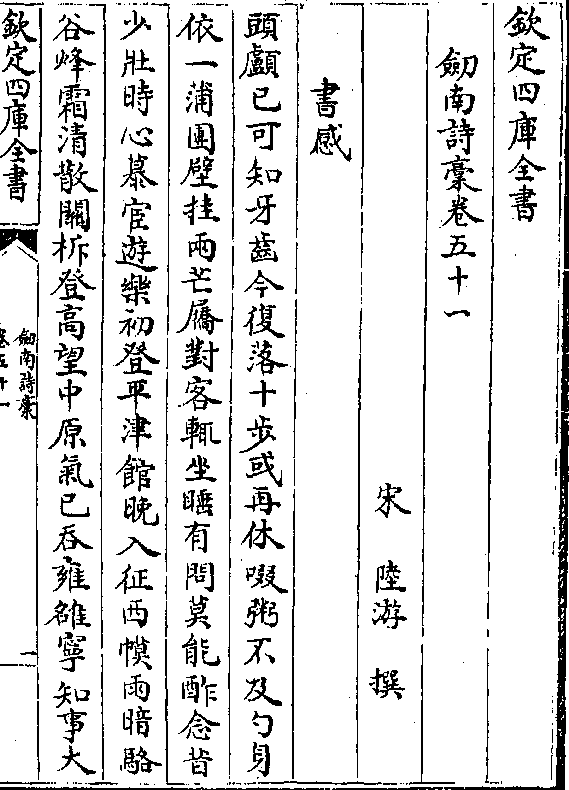 欽定四庫全書
劒南詩槀卷五十一
宋 陸游 撰
書感
頭顱已可知牙齒今復落十步或再休啜粥不及勺身
依一蒲團壁挂兩芒屩對客輒坐睡有問莫能酢念昔
少壯時心慕宦遊樂初登平津館晚入征西幙雨暗駱
谷烽霜清散關柝登高望中原氣已吞雍雒寧知事大
欽定四庫全書
劒南詩槀
卷五十一
一